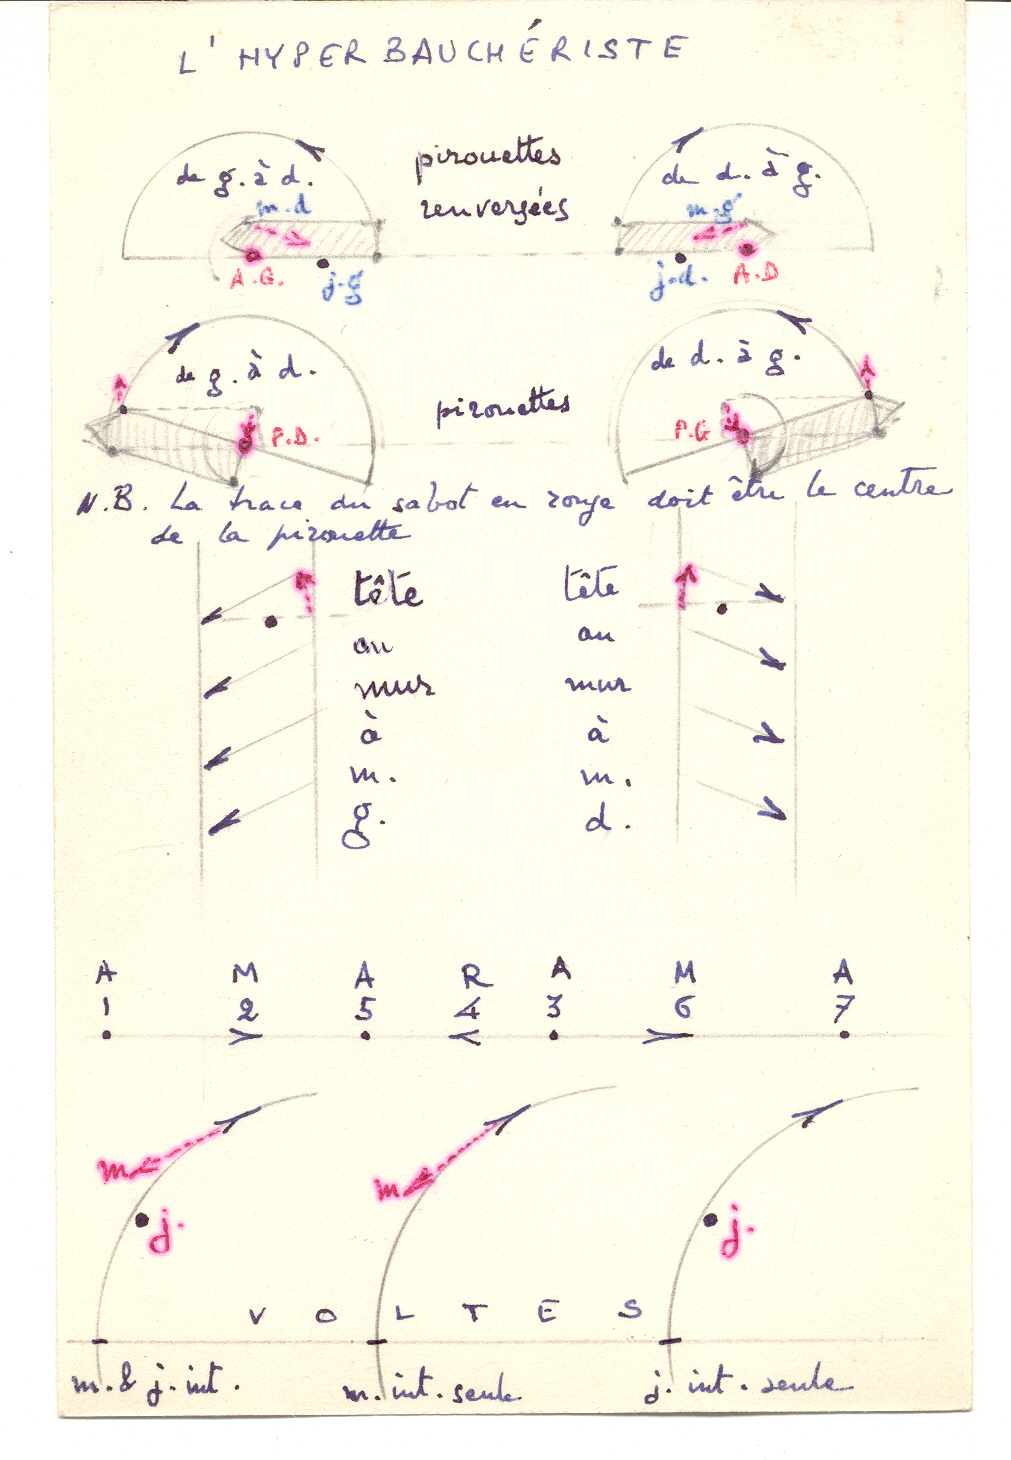 L'HYPERBAUCHÉRISTE
de g. à d.
pirouettes
renversées
de d. à g.
m.d
m.g
A.G.
j.g
j.d.
A.D
de g. à d.
pirouettes
de d. à g.
P.D.
P.G
N.B. La trace du sabot en rouge doit être le centre
de la pirouette
tête
au
mur
à
m.
g.
tête
au
mur
à
m.
d.
A M A R A M A
1 2 5 4 3 6 7
m
j.
m
j.
VOLTES
m. & j. int.
m. int. seule
j. int. seule